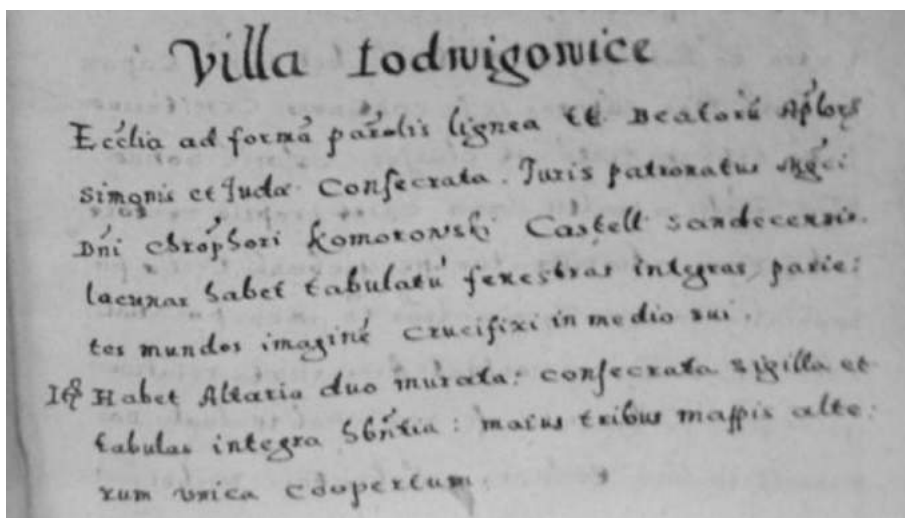 Villa Lodwigowice
Ecclia ad formã parolis lignea tt Beatorũ Aplorꝝ
Simonis et Judæ Consecrata. Juris patronatus Mgci
Dni Chrophori Komorowski Castell Sandecensis.
lacunar habet tabulatũ fenestras integras, parie:
tes mundos imaginẽ Crucifixi in medio sui.
Itẽ Habet Altaria duo murata: consecrata sigilla et
tabulas integra hbntia: maius tribus mappis alte:
rum unica coopertum